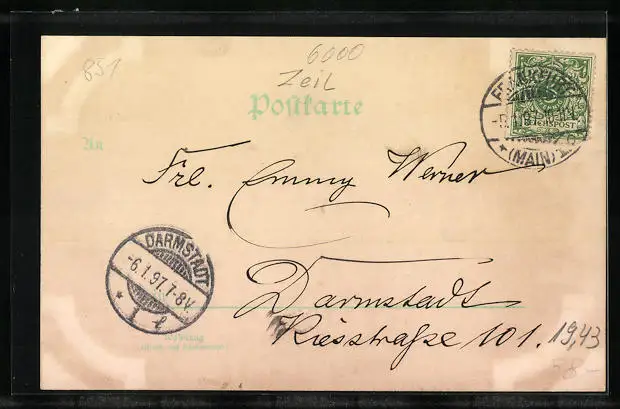 6000
851
Zeil
Postkarte
An
FRANKFURT
5.1.97
REICHSPOST
* (MAIN) 1.
Frl. Emmy Werner
DARMSTADT
-6.1.97.7-8V.
* 1 *
Darmstadt
Riesstraße 101.
19,43
Wohnung